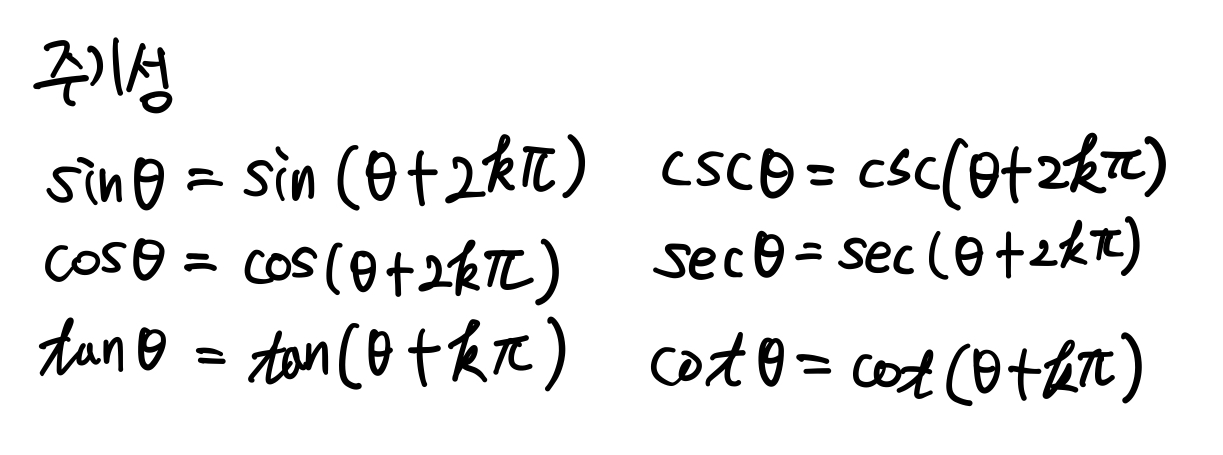 주기성
sinθ = sin(θ+2kπ) cscθ = csc(θ+2kπ)
cosθ = cos(θ+2kπ) secθ = sec(θ+2kπ)
tanθ = tan(θ+kπ) cotθ = cot(θ+kπ)